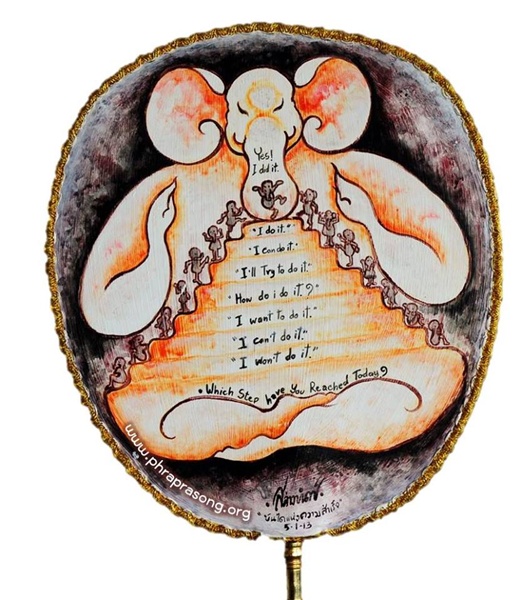 Yes!
I did it.
"I do it."
"I can do it."
"I'll Try to do it."
"How do i do it?"
"I want to do it."
"I can't do it."
"I won't do it."
• Which Step have You Reached Today?
www.phraprasong.org
"บันไดแห่งความสำเร็จ"
5-1-13